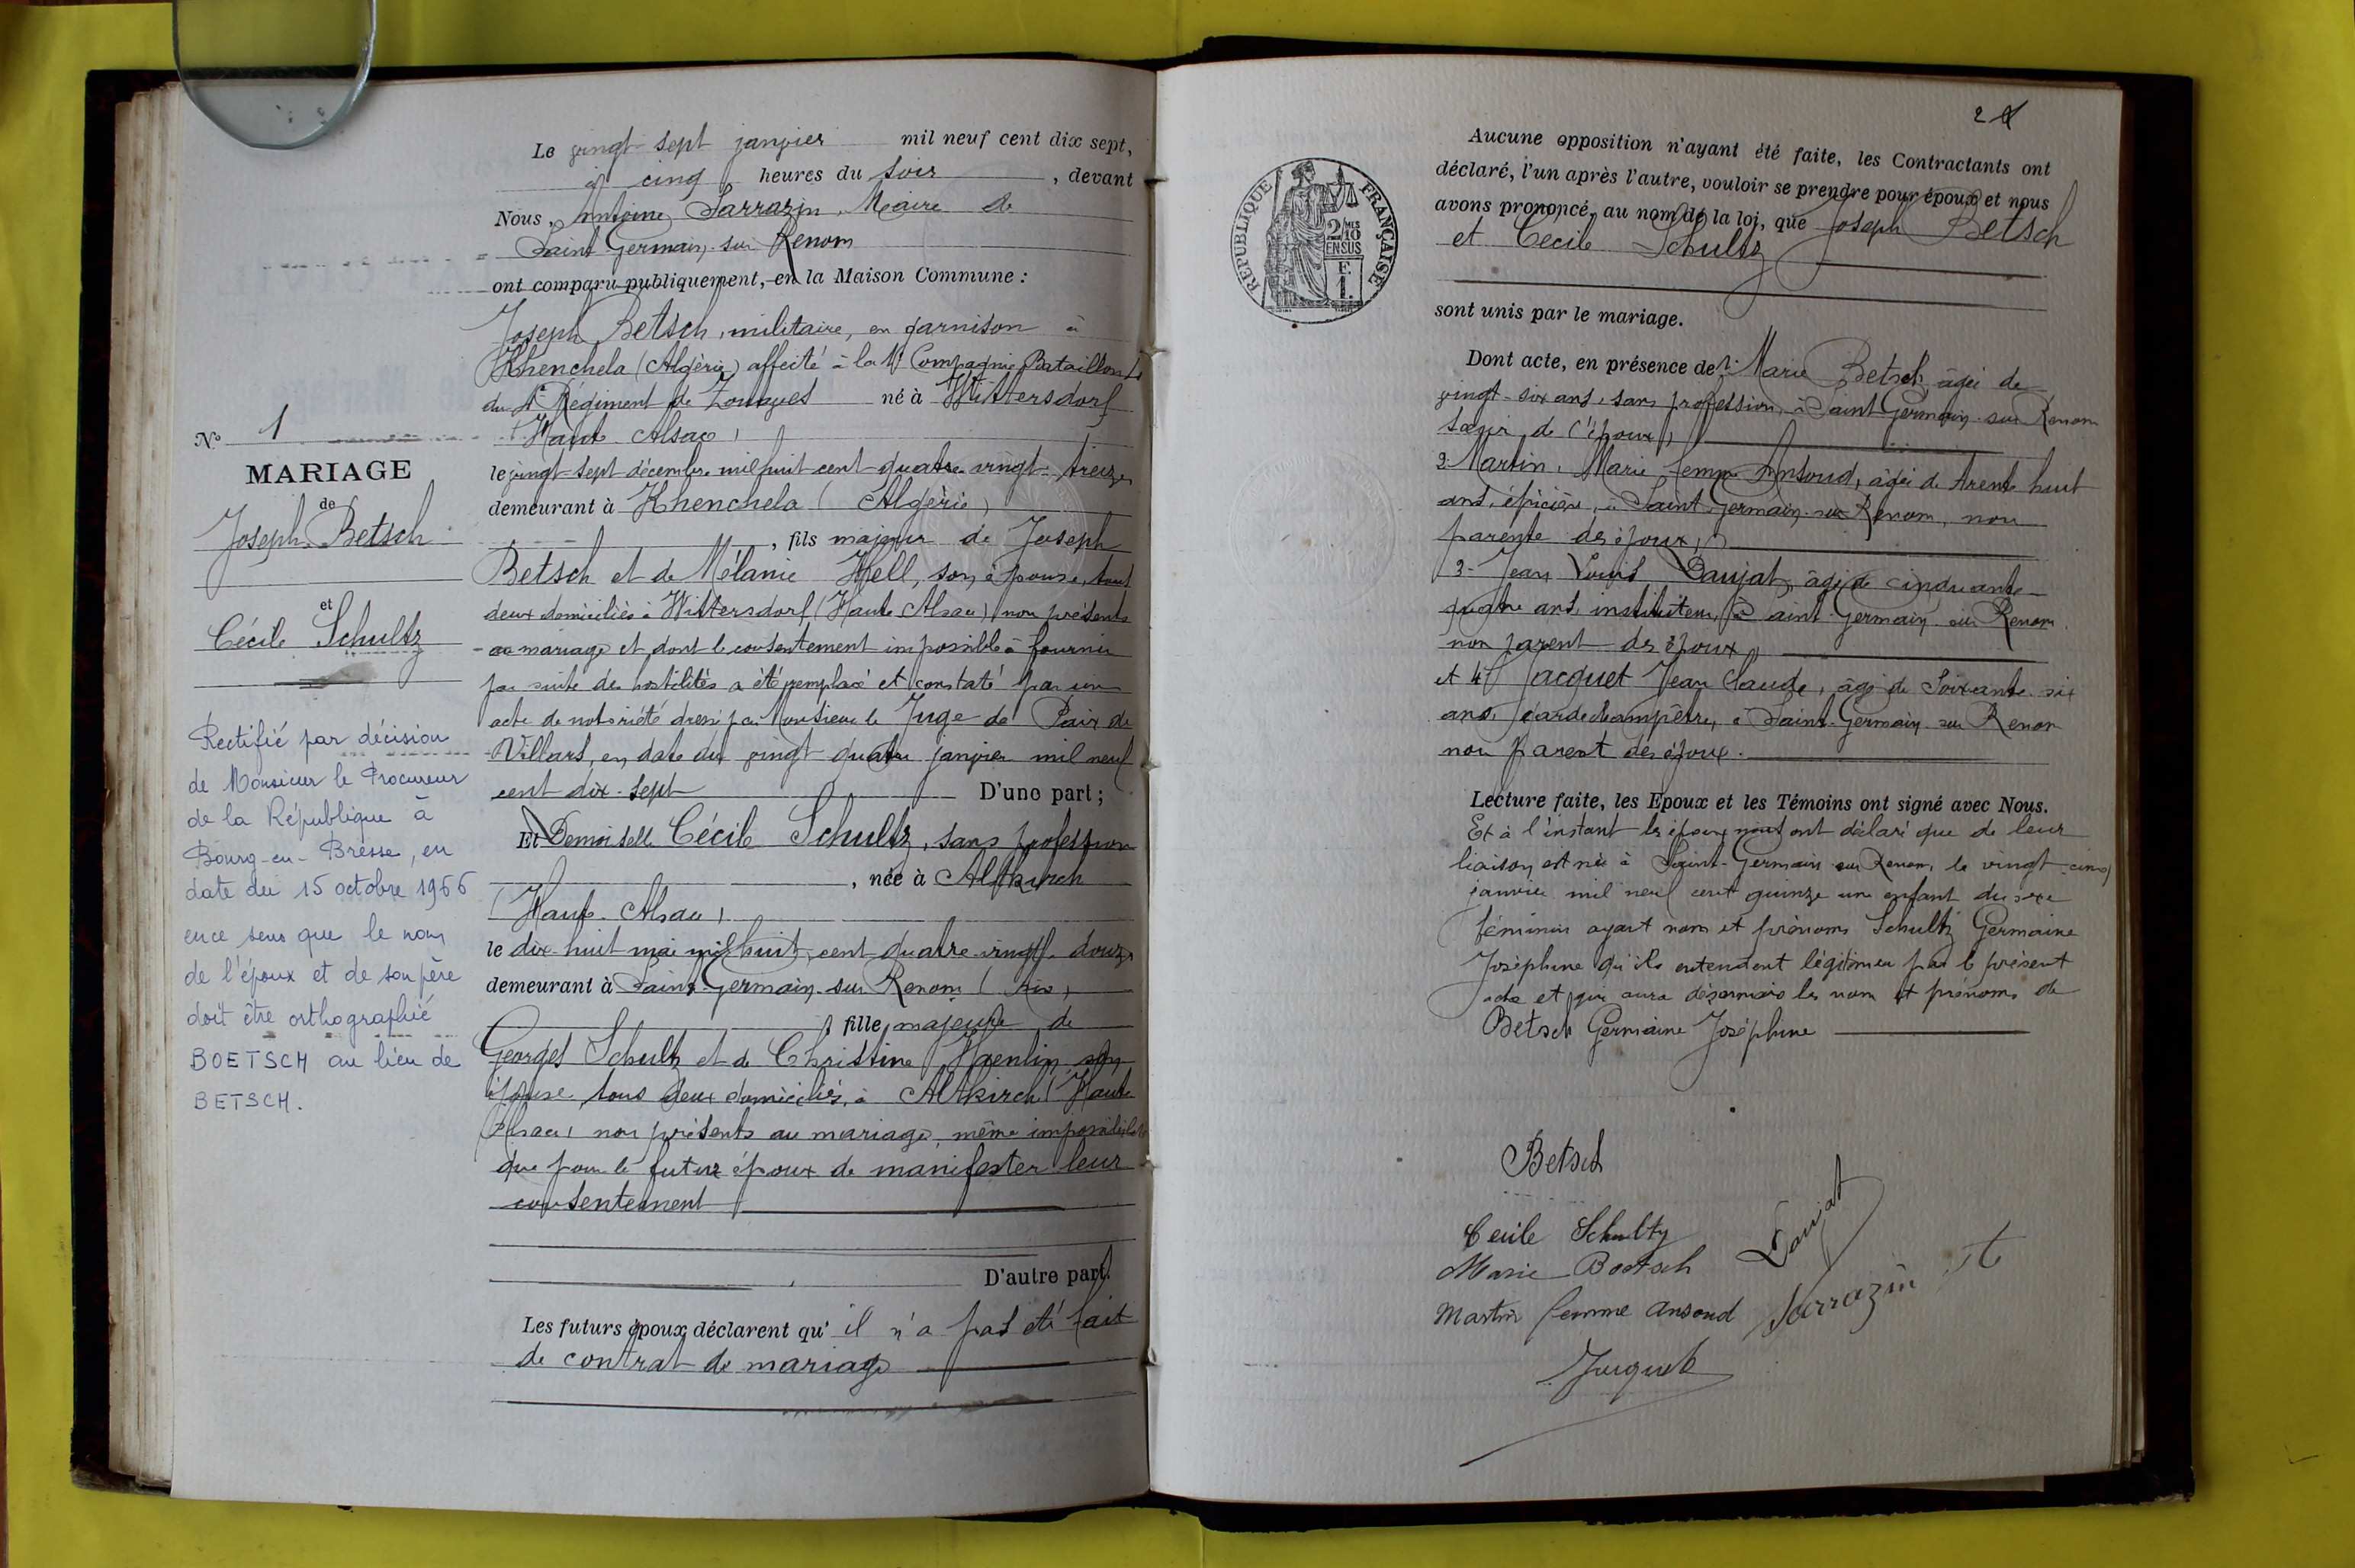 Le vingt-sept janvier mil neuf cent dix sept,
à cinq heures du soir, devant
Nous, Antoine Sarrazin, Maire de
Saint Germain-sur Renom
ont comparu publiquement, en la Maison Commune :
Joseph Betsch, militaire, en garnison à
Khenchela (Algérie) affecté à la Compagnie Bataillon
du 4e Régiment de Zouaves né à Wittersdorf
(Haute Alsace)
le vingt-sept décembre mil huit cent quatre vingt-treize
demeurant à Khenchela (Algérie)
, fils majeur de Joseph
Betsch et de Mélanie Hell, son épouse, tout
deux domiciliés à Wittersdorf (Haute Alsace) non présents
au mariage et dont le consentement impossible à fournir
par suite des hostilités a été remplacé et constaté par un
acte de notoriété dressé par Monsieur le Juge de Paix de
Villars, en date du vingt quatre janvier mil neuf
cent dix-sept D'une part ;
Et Demoiselle Cécile Schultz, sans profession
, née à Altkirch
(Haute-Alsace)
le dix-huit mai mil huit cent quatre-vingt-douze
demeurant à Saint-Germain-sur Renom (Ain)
, fille majeure de
Georges Schultz et de Christine Haenlin son
épouse, tous deux domiciliés à Altkirch (Haute
Alsace) non présents au mariage, même impossibilité
que pour le futur époux de manifester leur
consentement
D'autre part.
Les futurs époux déclarent qu'il n'a pas été fait
de contrat de mariage
No 1
MARIAGE
de
Joseph Betsch
et
Cécile Schultz
Rectifié par décision
de Monsieur le Procureur
de la République à
Bourg-en-Bresse, en
date du 15 octobre 1966
en ce sens que le nom
de l'époux et de son père
doit être orthographié
BOETSCH au lieu de
BETSCH.
2
REPUBLIQUE FRANÇAISE
2/10
EN SUS
F.
1.
Aucune opposition n'ayant été faite, les Contractants ont
déclaré, l'un après l'autre, vouloir se prendre pour époux et nous
avons prononcé, au nom de la loi, que Joseph Betsch
et Cécile Schultz
sont unis par le mariage.
Dont acte, en présence de 1. Marie Betsch, âgée de
vingt-six ans, sans profession, à Saint Germain-sur Renom
sœur de l'époux,
2. Martin, Marie femme Ansoud, âgée de trente huit
ans, épicière, à Saint-Germain-sur Renom, non
parente des époux,
3- Jean Louis Daujat, âgé de cinquante-
quatre ans, instituteur, à Saint-Germain-sur Renom
non parent des époux,
et 4° Jacquet Jean Claude, âgé de Soixante-six
ans, garde champêtre, à Saint-Germain-sur Renom
non parent des époux.
Lecture faite, les Epoux et les Témoins ont signé avec Nous.
Et à l'instant les époux nous ont déclaré que de leur
liaison est née à Saint-Germain sur Renom, le vingt-cinq
janvier mil neuf cent quinze une enfant du sexe
féminin ayant nom et prénoms Schultz Germaine
Joséphine qu'ils entendent légitimer par le présent
acte et qui aura désormais les nom et prénoms de
Betsch Germaine Joséphine
Betsch
Cecile Schultz
Marie Boetsch
Daujat
Martin femme Ansoud
Sarrazin
Jacquet